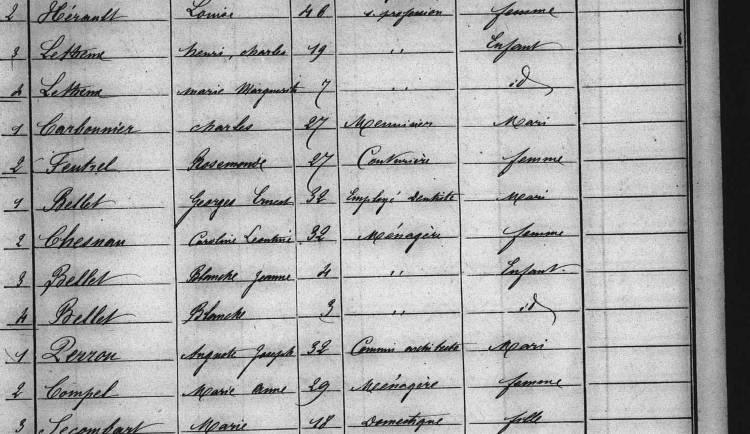 2 Hérault Louise 46 s. profession femme
3 Lethème henri, charles 19 " Enfant
4 Lethème marie Marguerite 7 " id
1 Carbonnier charles 27 Menuisier Mari
2 Feutrel Rosemonde 27 Couturière femme
1 Bellet Georges Ernest 32 Employé Dentiste Mari
2 Chesnau Caroline Leontine 32 Ménagère femme
3 Bellet Blanche Jeanne 4 " Enfant
4 Bellet Blanche 3 " id
1 Perron Auguste Joseph 32 Commis architecte Mari
2 Compel Marie Anne 39 Ménagère femme
3 Lecombart Marie 18 Domestique fille